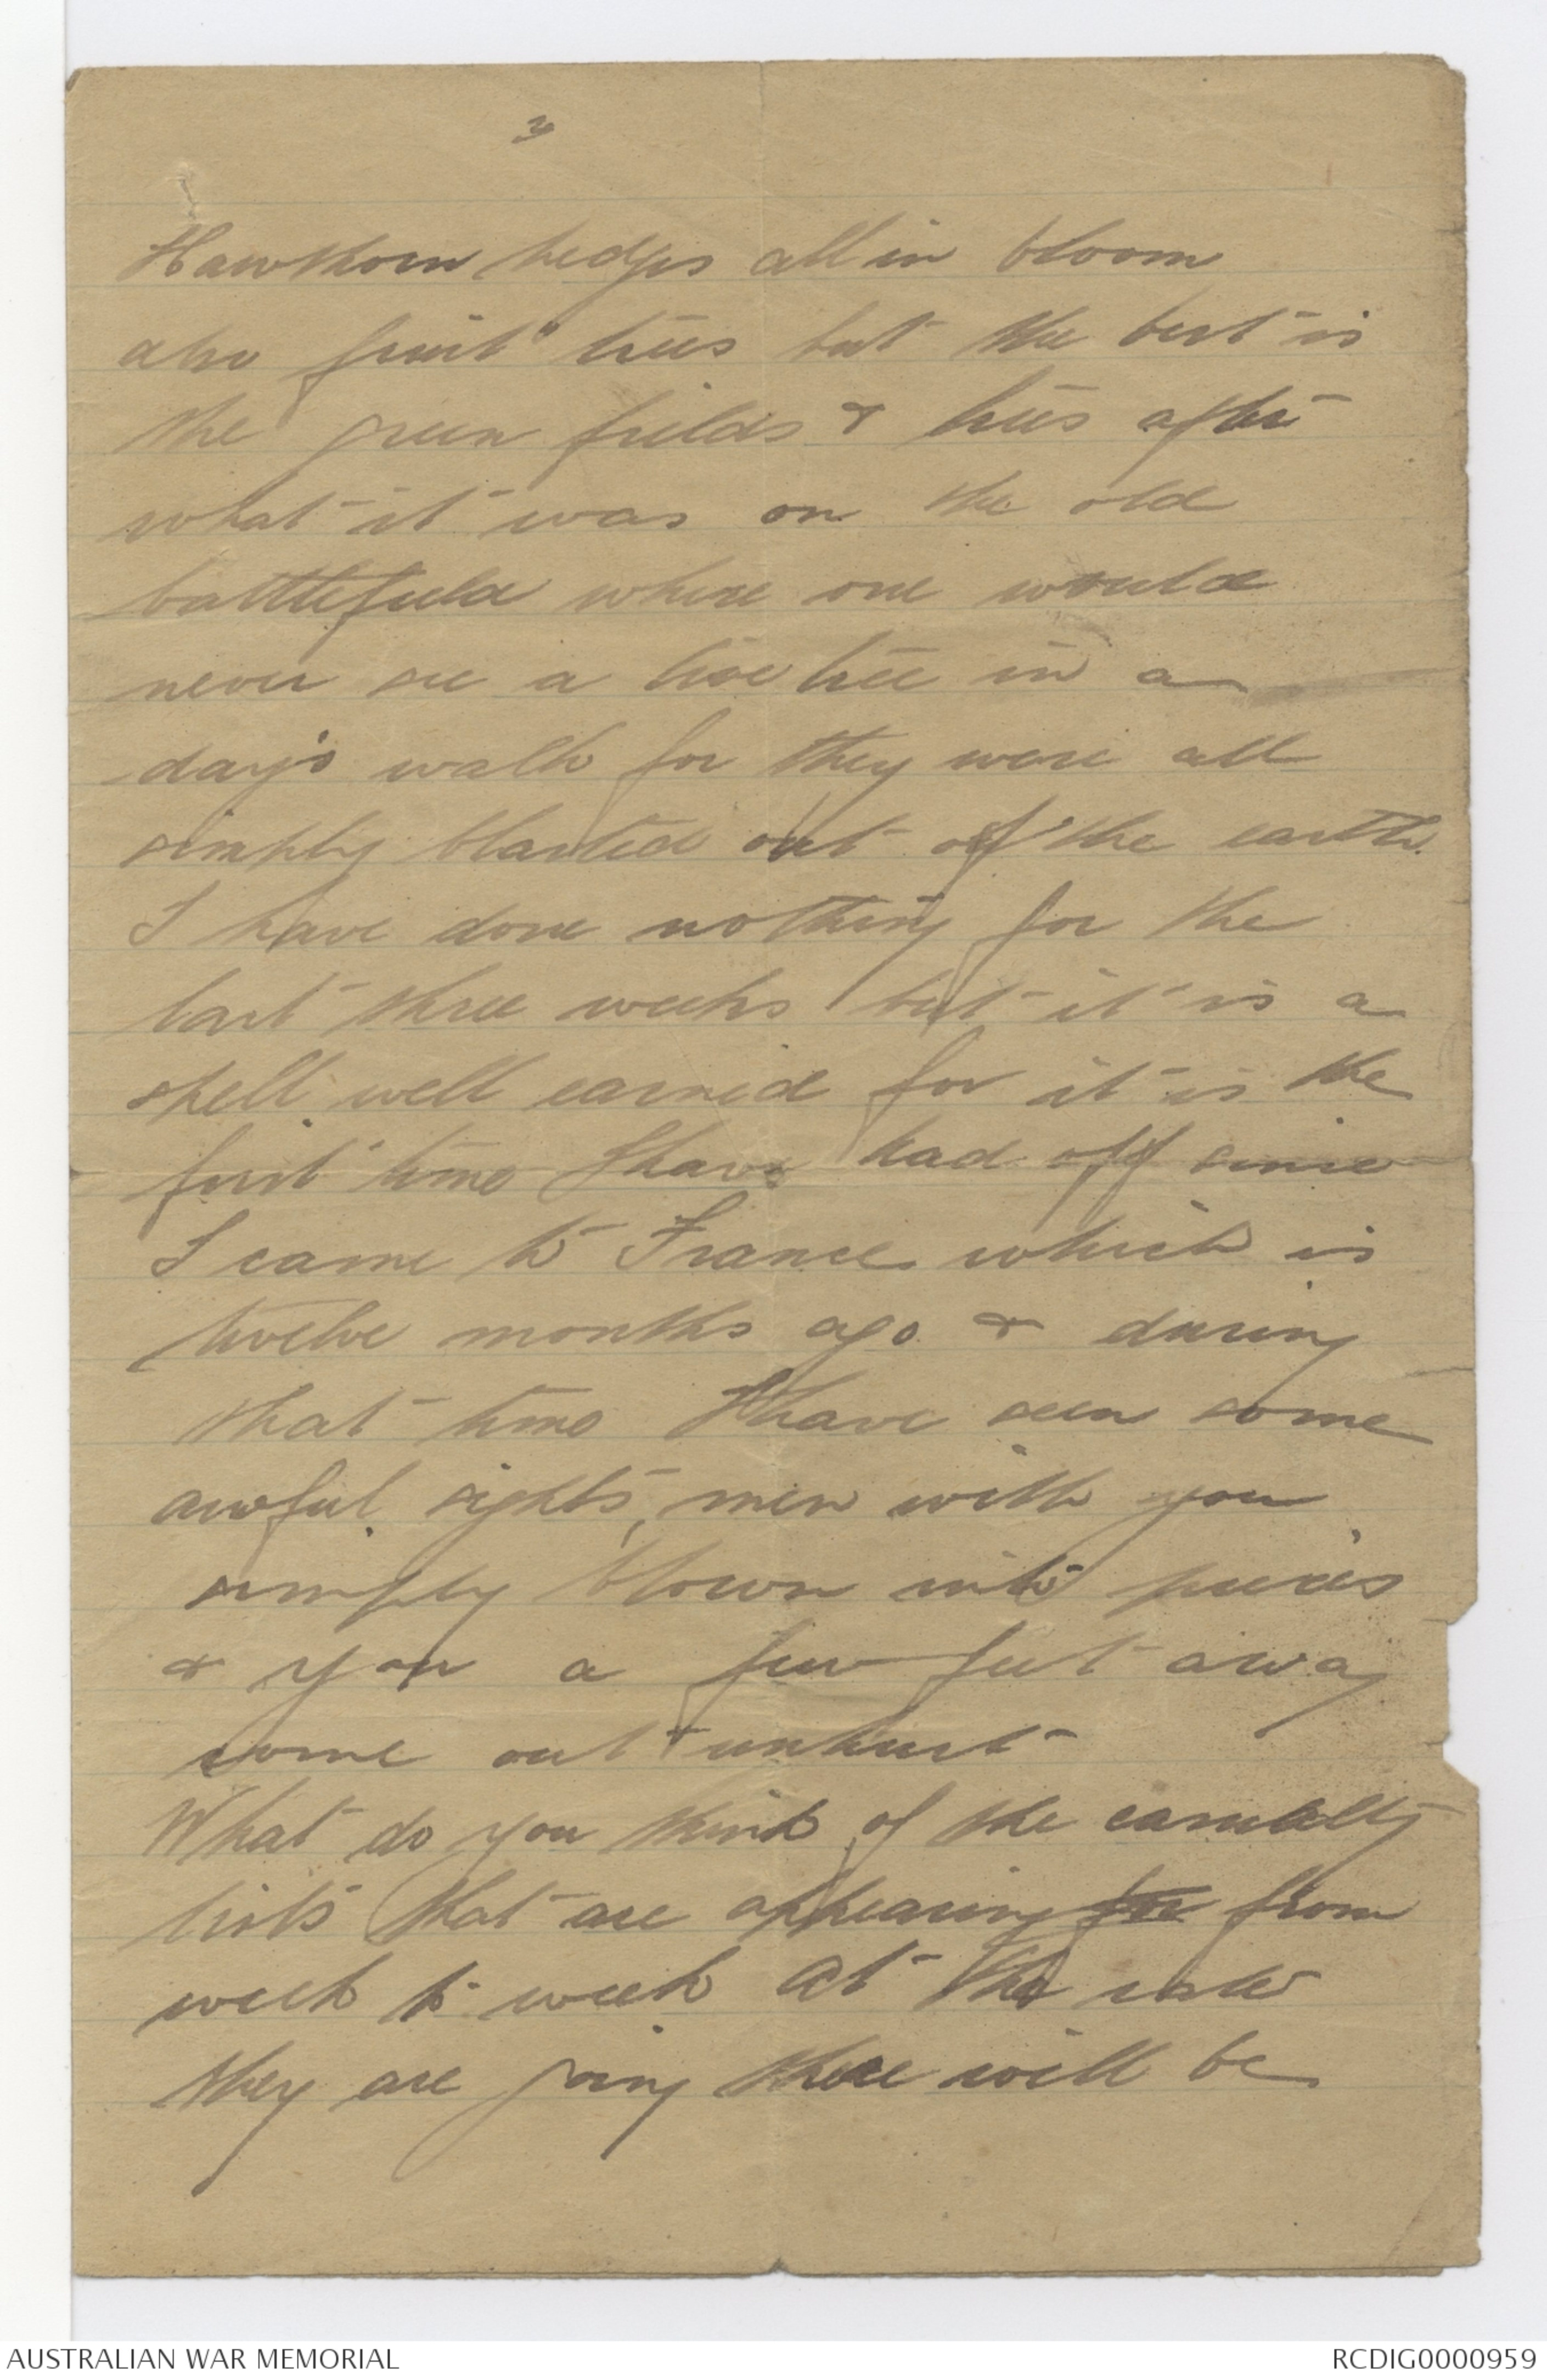 3
Hawthorn hedges all in bloom
also fruit trees but the best is
the green fields & trees after
what it was on the old
battlefield where one would
never see a live tree in a
day's walk for they were all
simply blasted out of the earth.
I have done nothing for the
last three weeks but it is a
spell well earned for it is the
first time I have had off since
I came to France which is
twelve months ago & during
that time I have seen some
awful sights, men with you
simply blown into pieces
& you a few feet away
come out unhurt
What do you think of the casualty
lists that are appearing for from
week to week At the rate
they are going there will be
AUSTRALIAN WAR MEMORIAL
RCDIG0000959